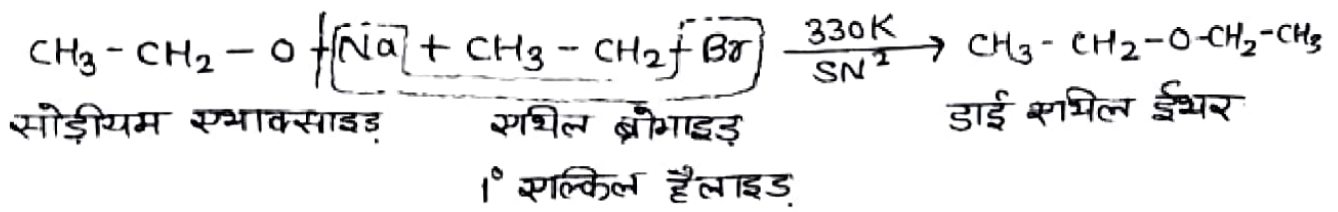 CH₃ - CH₂ - O Na + CH₃ - CH₂ Br 330K SN² → CH₃ - CH₂ - O - CH₂ - CH₃
सोड़ीयम एथाक्साइड़ एथिल ब्रोमाइड़ डाई एथिल ईथर
1° एल्किल हैलाइड़